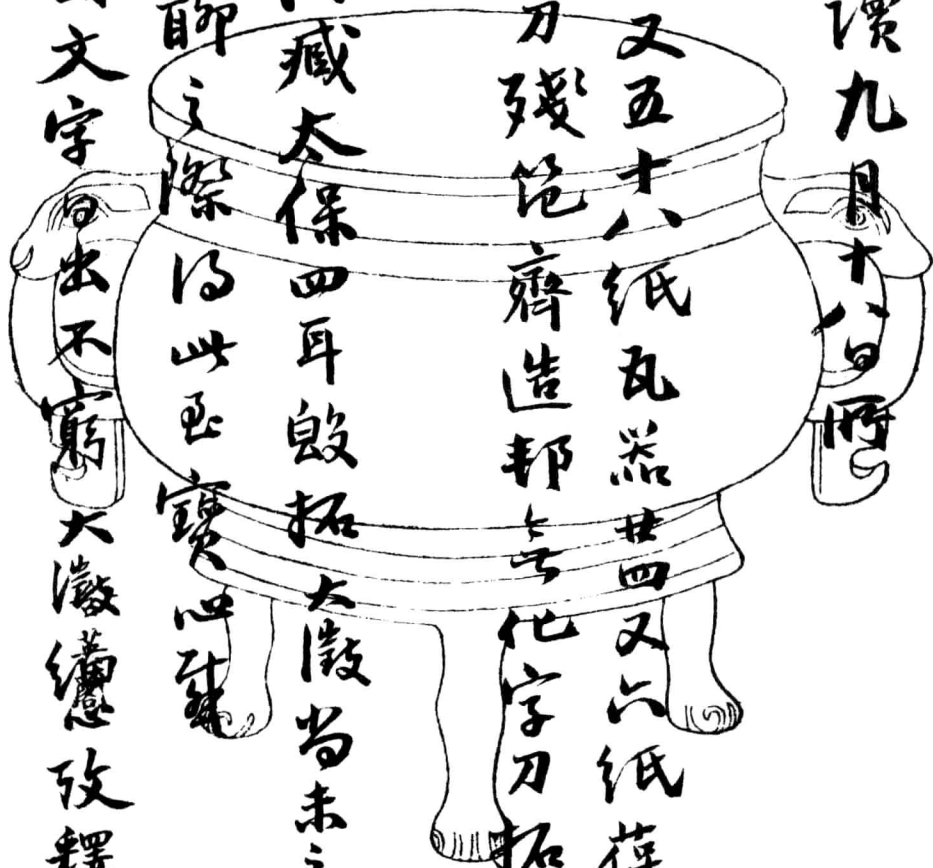 瀆九月十八日所
又五十八紙瓦器廿四又六紙葆
刀殘笵齊造邦去化字刀拓
藏太保四耳𣪘拓大澂尚未之
聊之際得此至寶心
文字日出不窮大澂攷釋